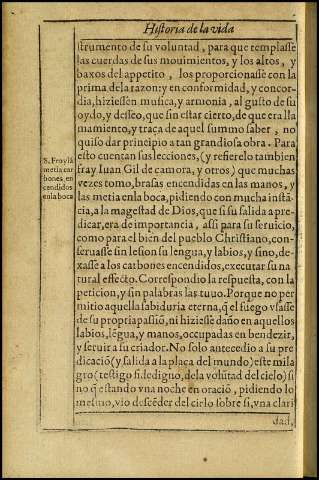 Historia de la vida
strumento de su voluntad, para que templasse
las cuerdas de sus mouimientos, y los altos, y
baxos del appetito, los proporcionasse con la
prima de la razon: y en conformidad, y concor-
dia, hiziessen musica, y armonia, al gusto de su
oydo, y desseo, que sin estar cierto, de que era lla
mamiento, y traça de aquel summo saber, no
quiso dar principio a tan grandiosa obra. Para
esto cuentan sus lecciones, (y refierelo tambien
fray Iuan Gil de camora, y otros) que muchas
vezes tomo, brasas encendidas en las manos, y
las metia en la boca, pidiendo con mucha instã-
cia, a la magestad de Dios, que si su salida a pre-
dicar, era de importancia, assi para su seruicio,
como para el bien del pueblo Christiano, con-
seruasse sin lesion su lengua, y labios, y sino, de-
xasse a los carbones encendidos, executar su na
tural effecto. Correspondio la respuesta, con la
peticion, y sin palabras la tuuo. Porque no per
mitio aquella sabiduria eterna, q̃ el fuego vsasse
de su propria passiõ, ni hiziesse daño en aquellos
labios, lẽgua, y manos, ocupadas en bendezir,
y seruir a su criador. No solo antecedio a su pre
dicaciõ (y salida a la plaça del mundo) este mila
gro (testigo fidedigno, de la volũtad del cielo) si
no q̃ estando vna noche en oraciõ, pidiendo lo
mesmo, vio descẽder del cielo sobre si, vna clari
dad,
S. Froylã
metia car
bones, en
cendidos
en la boca